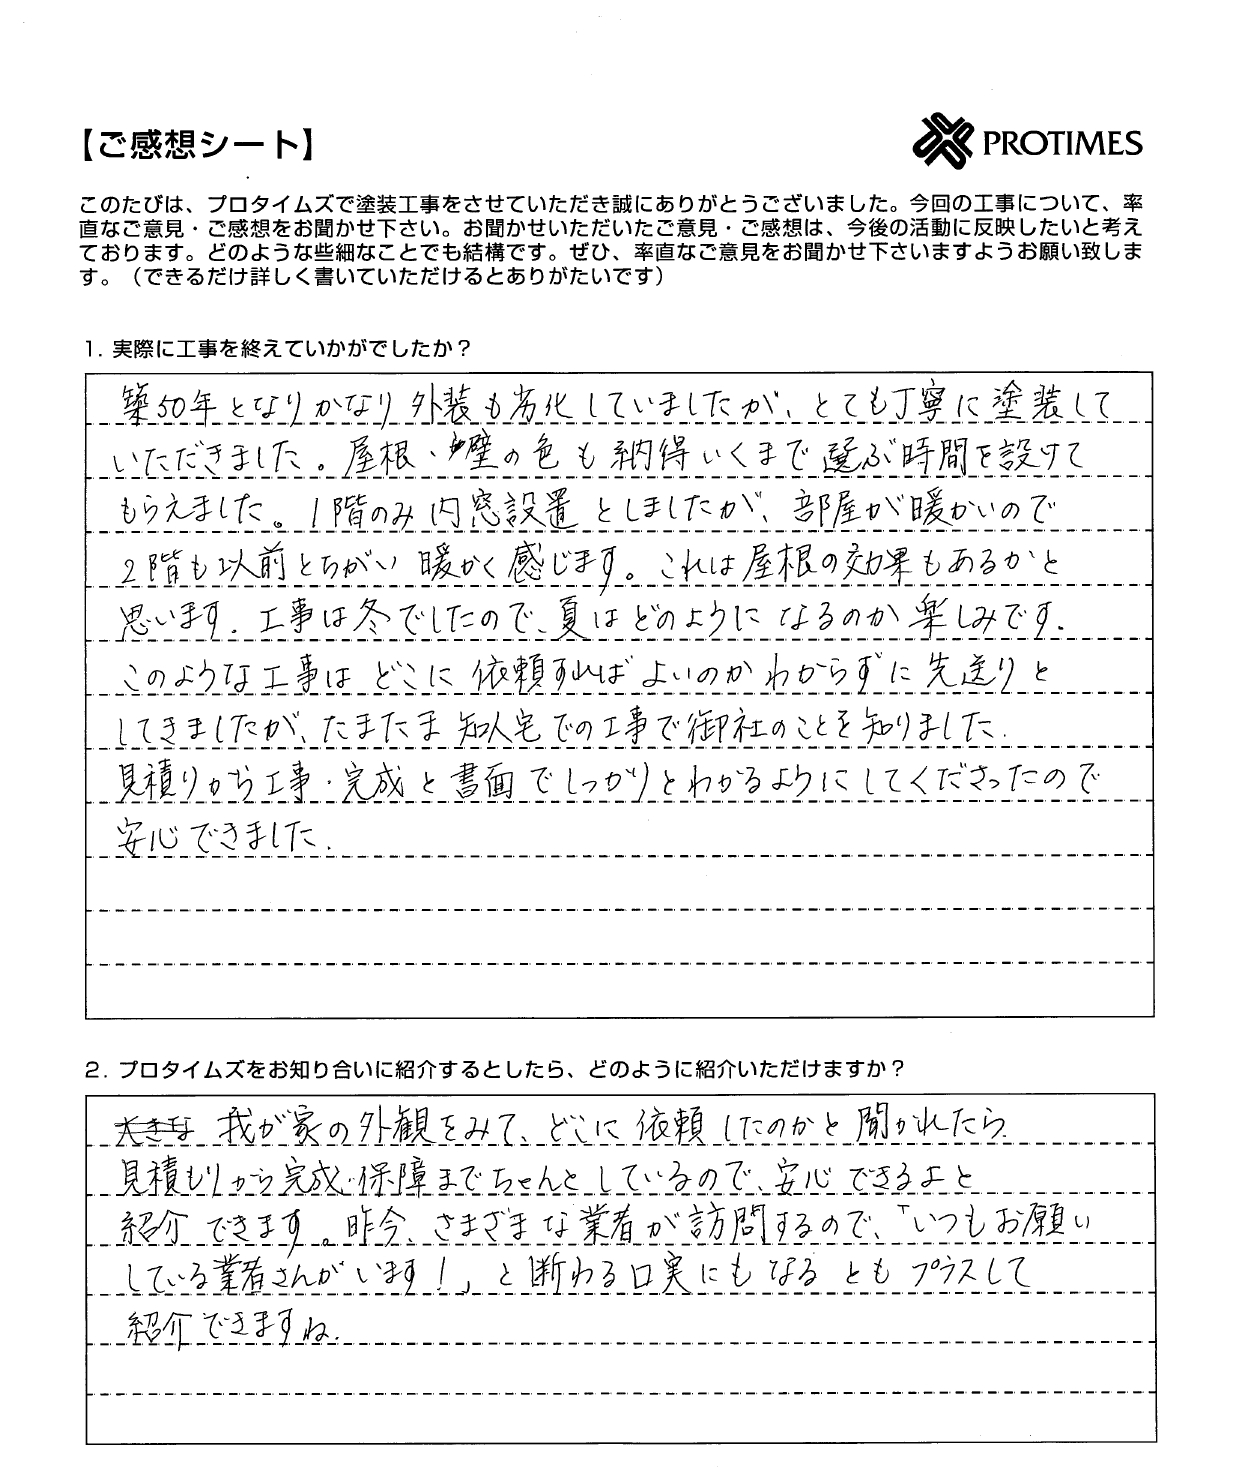 【ご感想シート】
PROTIMES
このたびは、プロタイムズで塗装工事をさせていただき誠にありがとうございました。今回の工事について、率
直なご意見・ご感想をお聞かせ下さい。お聞かせいただいたご意見・ご感想は、今後の活動に反映したいと考え
ております。どのような些細なことでも結構です。ぜひ、率直なご意見をお聞かせ下さいますようお願い致しま
す。（できるだけ詳しく書いていただけるとありがたいです）
1. 実際に工事を終えていかがでしたか？
築50年となりかなり外装も劣化していましたが、とても丁寧に塗装して
いただきました。屋根・壁の色も納得いくまで選ぶ時間を設けて
もらえました。1階のみ内窓設置としましたが、部屋が暖かいので
2階も以前とちがい暖かく感じます。これは屋根の効果もあるかと
思います。工事は冬でしたので、夏はどのようになるのか楽しみです。
このような工事はどこに依頼すればよいのかわからずに先送りと
してきましたが、たまたま知人宅での工事で御社のことを知りました。
見積りから工事・完成と書面でしっかりとわかるようにしてくださったので
安心できました。
2. プロタイムズをお知り合いに紹介するとしたら、どのように紹介いただけますか？
大きな 我が家の外観をみて、どこに依頼したのかと聞かれたら、
見積もりから完成・保障までちゃんとしているので、安心できるよと
紹介できます。昨今、さまざまな業者が訪問するので、「いつもお願い
している業者さんがいます！」と断わる口実にもなるともプラスして
紹介できますね。